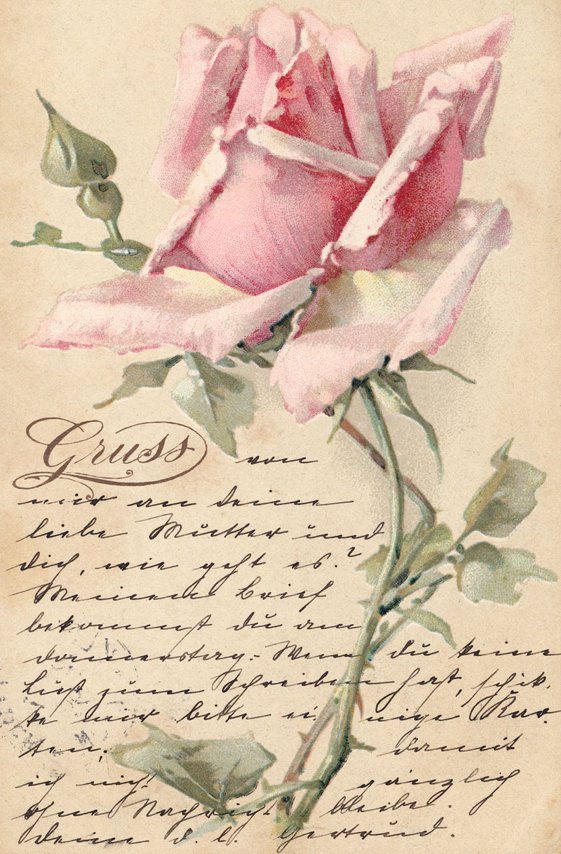 Gruss von
mir an deine
liebe Mutter und
dich, wie geht es?
Meinem Brief
bekommst du am
donnerstag.- Wenn du keine
lust zum Schreiben hast, schik-
ke mir bitte einige Kar-
ten, damit
ich nicht gänzlich
ohne Nachricht bleibe.
Deine d. l. Gertrud.